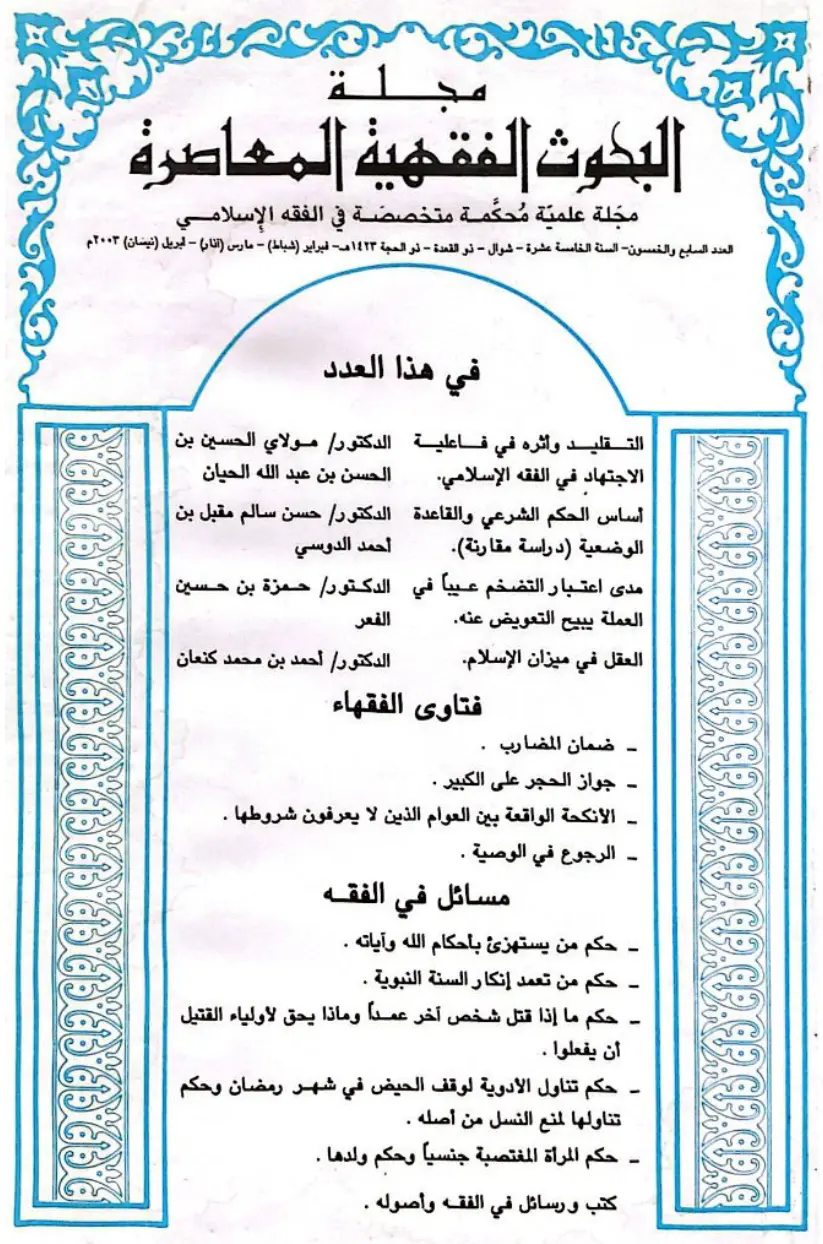 مجلة
البحوث الفقهية المعاصرة
مجَلة علميَة مُحكَّمة متخصصَة في الفقه الإِسلامي
العدد السابع والخمسون- السنة الخامسة عشرة - شوال - ذو القعدة - ذو الحجة ١٤٢٣هـ- فبراير (شباط) - مارس (آذار) - ابريل (نيسان) ٢٠٠٣م
في هذا العدد
التقليد وأثره في فاعلية الدكتور/ مولاي الحسين بن
الاجتهاد في الفقه الإسلامي. الحسن بن عبد الله الحيان
أساس الحكم الشرعي والقاعدة الدكتور/ حسن سالم مقبل بن
الوضعية (دراسة مقارنة). أحمد الدوسي
مدى اعتبار التضخم عيباً في الدكتور/ حمزة بن حسين
العملة يبيح التعويض عنه. الفعر
العقل في ميزان الإسلام. الدكتور/ أحمد بن محمد كنعان
فتاوى الفقهاء
- ضمان المضارب .
- جواز الحجر على الكبير .
- الأنكحة الواقعة بين العوام الذين لا يعرفون شروطها .
- الرجوع في الوصية .
مسائل في الفقه
- حكم من يستهزئ بأحكام الله وآياته .
- حكم من تعمد إنكار السنة النبوية .
- حكم ما إذا قتل شخص آخر عمداً وماذا يحق لأولياء القتيل
أن يفعلوا .
- حكم تناول الأدوية لوقف الحيض في شهر رمضان وحكم
تناولها لمنع النسل من أصله .
- حكم المرأة المغتصبة جنسياً وحكم ولدها .
كتب ورسائل في الفقه وأصوله .